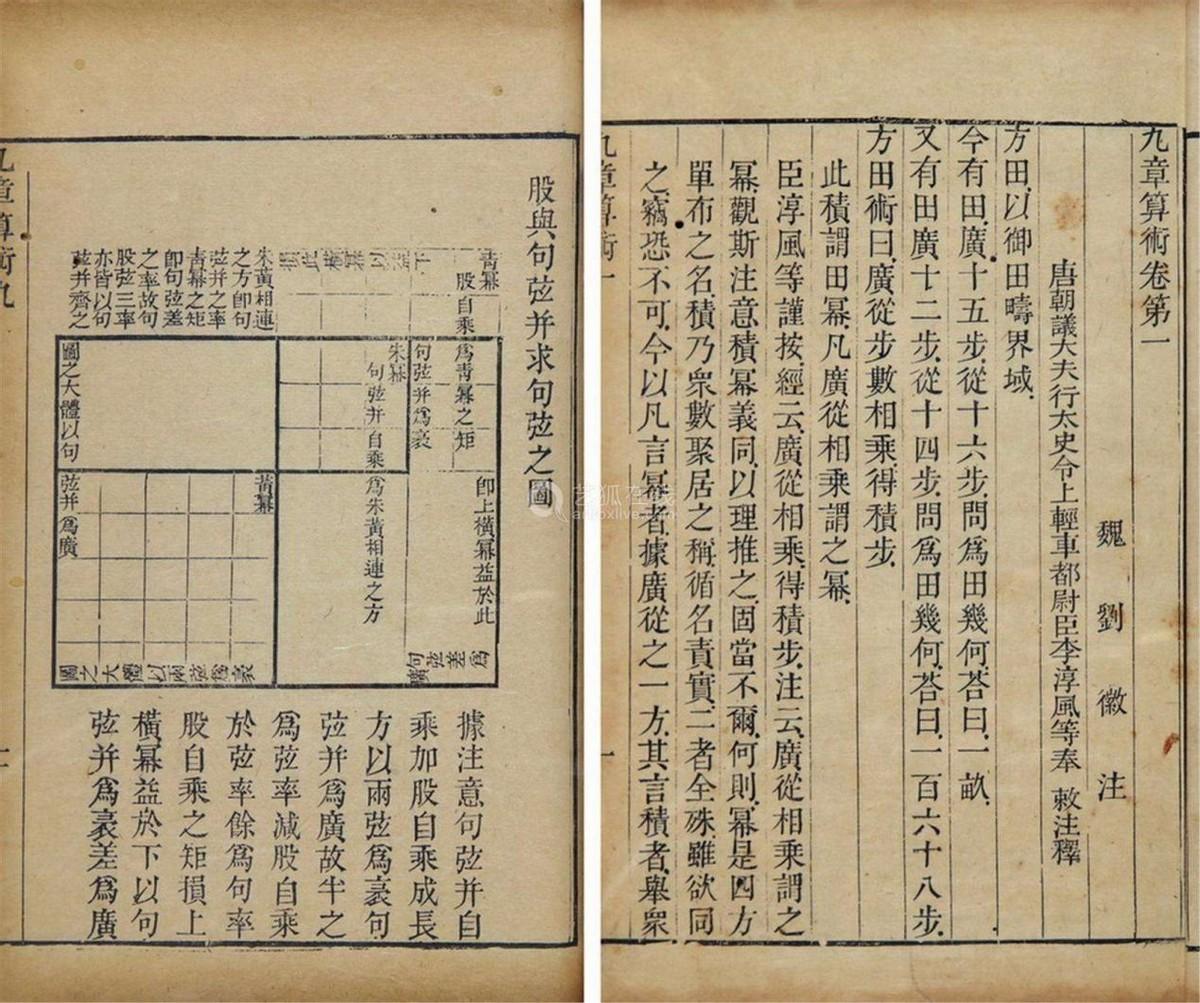 九章算術卷第一
魏劉徽注
唐朝議大夫行太史令上輕車都尉臣李淳風等奉敕注釋
方田以御田疇界域
今有田廣十五步從十六步問爲田幾何荅曰一畝
又有田廣十二步從十四步問爲田幾何荅曰一百六十八步
方田術曰廣從步數相乘得積步
此積謂田冪凡廣從相乘謂之冪
臣淳風等謹按經云廣從相乘得積步注云廣從相乘謂之
冪觀斯注意積冪義同以理推之固當不爾何則冪是四方
單布之名積乃衆數聚居之稱循名責實二者全殊雖欲同
之竊恐不可今以凡言冪者據廣從之一方其言積者舉衆
九章算術一
一
股與句弦并求句弦之圖
青冪
股自乘爲青冪之矩
卽上橫冪益於此
句弦差爲廣
句弦并爲袤
朱冪
句弦并自乘爲朱黃相連之方
朱黃相連
之方卽句
弦并之率
青冪之矩
卽句弦差
之率故句
股弦三率
亦皆以句
弦并齊之
黃冪
圖之大體以句
弦并爲廣
圖之大體以兩弦爲袤
據注意句弦并自
乘加股自乘成長
方以兩弦爲袤句
弦并爲廣故半之
爲弦率減股自乘
於弦率餘爲句率
股自乘之矩損上
橫冪益於下以句
弦并爲袤差爲廣
九章算術九
艺狐在线
artfoxlive.com